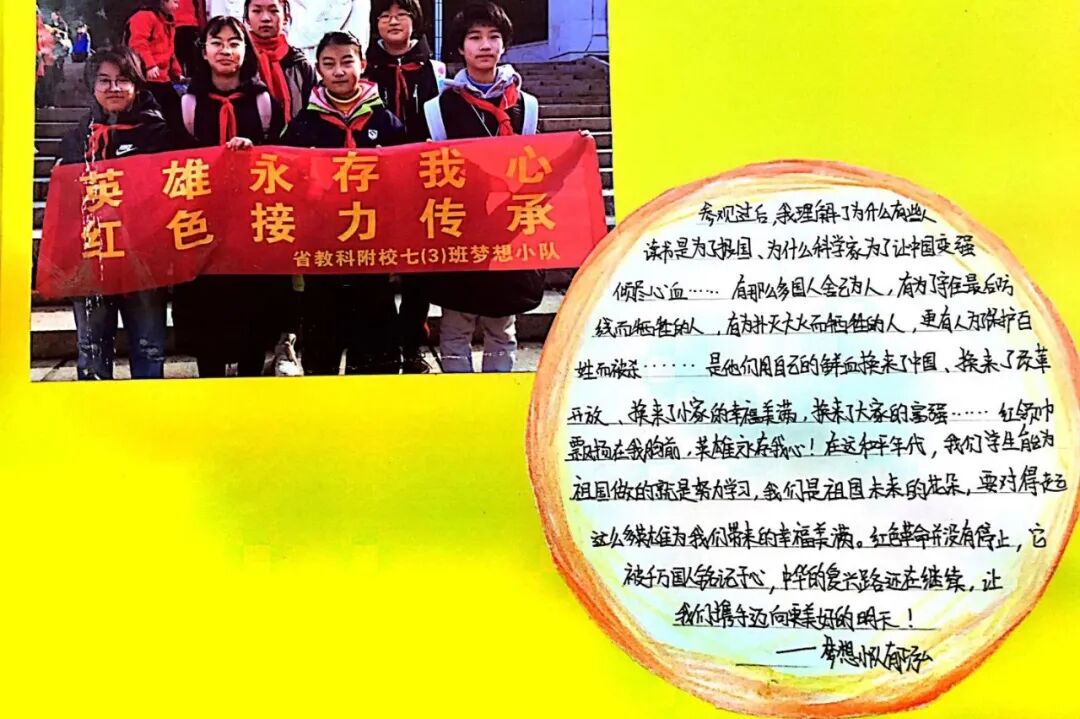 英雄永存我心
红色接力传承
省教科附校七(3)班梦想小队
参观过后,我理解了为什么有些人
读书是为了报国、为什么科学家为了让中国变强
倾尽心血……有那么多国人舍己为人,有为了守住最后防
线而牺牲的人,有为扑灭大火而牺牲的人,更有人为保护百
姓而被杀……是他们用自己的鲜血换来了中国、换来了改革
开放、换来了小家的幸福美满,换来了大家的富强……红领巾
飘扬在我胸前,英雄永存我心!在这和平年代,我们学生能为
祖国做的就是努力学习,我们是祖国未来的花朵,要对得起
这么多英雄为我们带来的幸福美满。红色革命并没有停止,它
被千万国人铭记于心,中华的复兴路还在继续,让
我们携手迈向更美好的明天!
——梦想小队